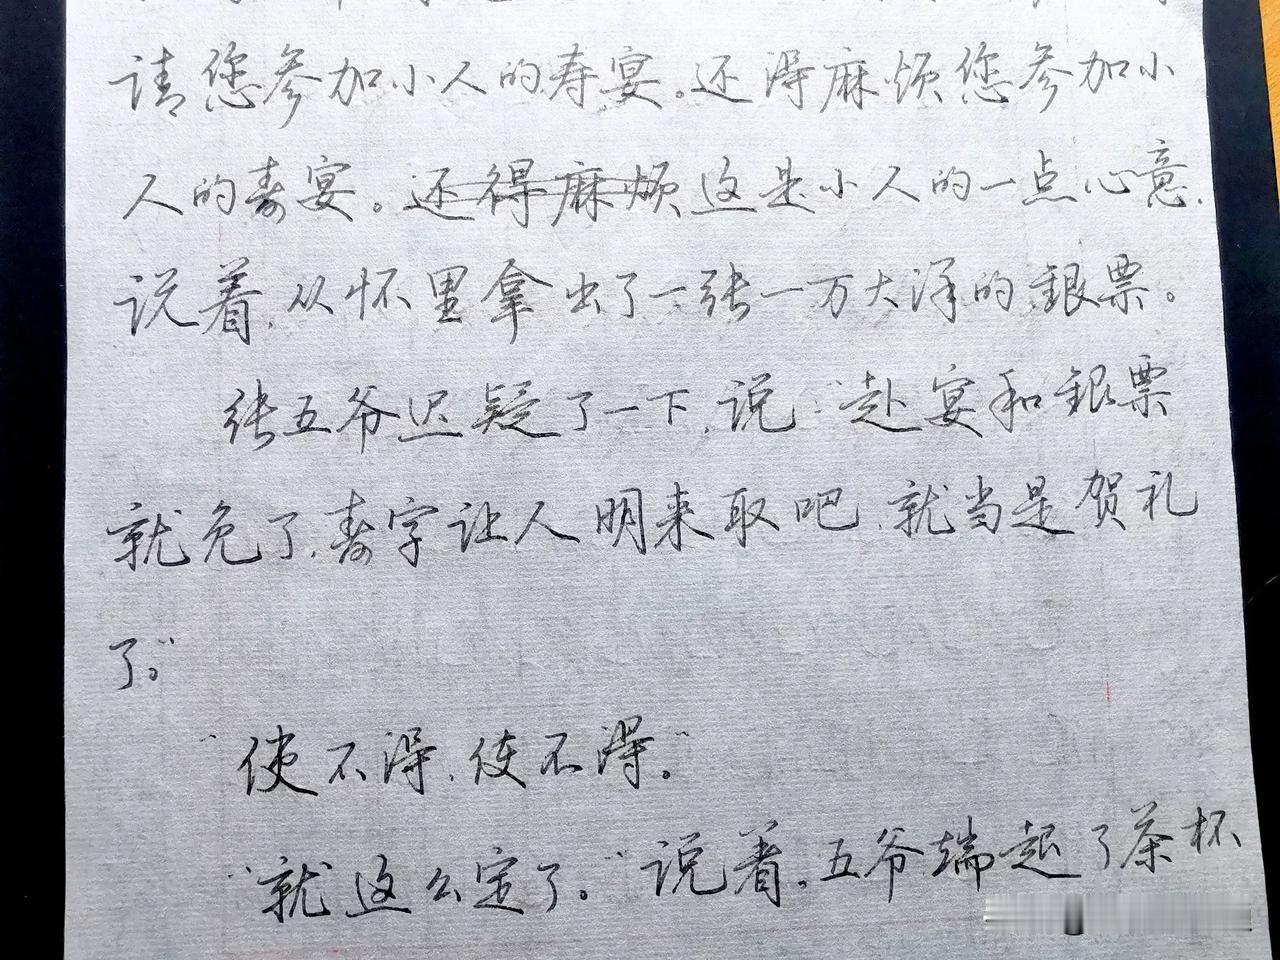 请您参加小人的寿宴。还得麻烦您参加小
人的寿宴。还得麻烦这是小人的一点心意,
说着,从怀里拿出了一张一万大洋的銀票。
张五爷迟疑了一下,说:"赴宴和銀票
就免了,寿字让人明来取吧,就当是贺礼
了。"
"使不得,使不得。"
"就这么定了。"说着,五爷端起了茶杯